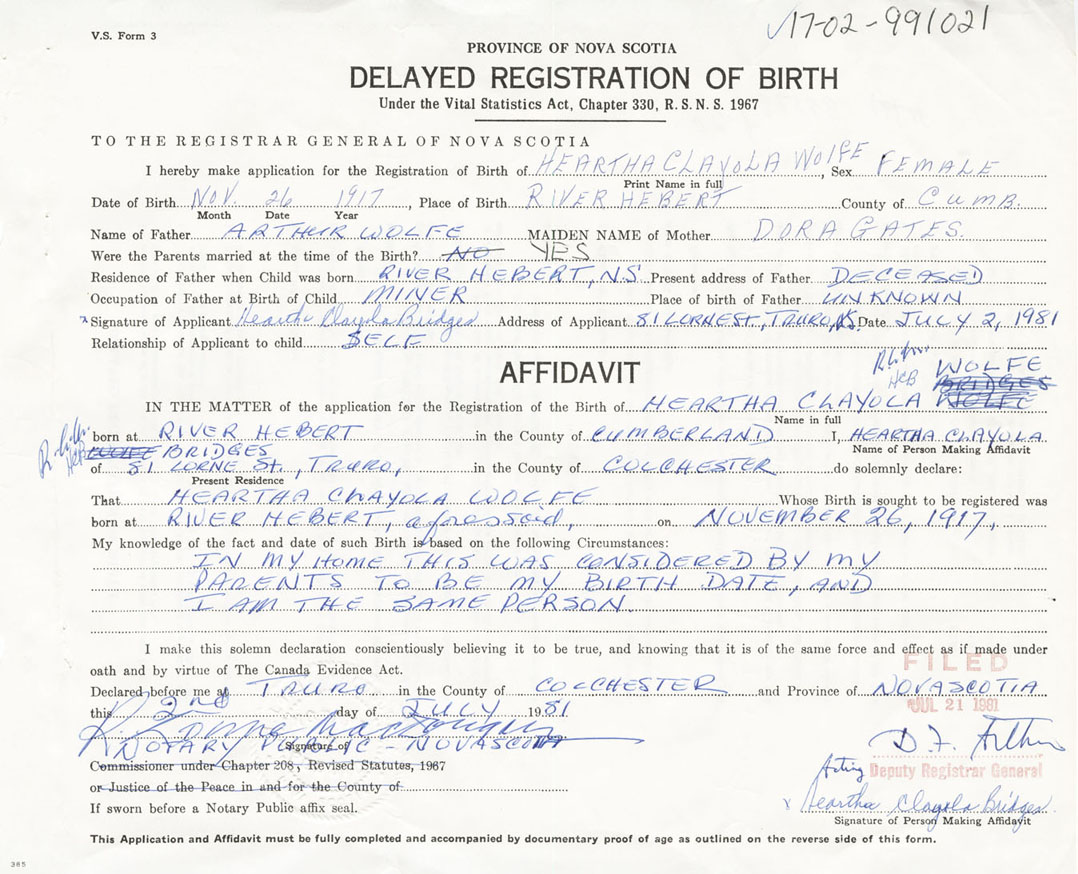 17-02-991021
V.S. Form 3
PROVINCE OF NOVA SCOTIA
DELAYED REGISTRATION OF BIRTH
Under the Vital Statistics Act, Chapter 330, R.S.N.S. 1967
TO THE REGISTRAR GENERAL OF NOVA SCOTIA
I hereby make application for the Registration of Birth of HEARTHA CLAYOLA WOLFE, Sex FEMALE
Print Name in full
Date of Birth NOV. 26 1917, Place of Birth RIVER HEBERT County of CUMB.
Month Date Year
Name of Father ARTHUR WOLFE MAIDEN NAME of Mother DORA GATES.
Were the Parents married at the time of the Birth? NO YES
Residence of Father when Child was born RIVER HEBERT, N.S. Present address of Father DECEASED
Occupation of Father at Birth of Child MINER Place of birth of Father UNKNOWN
Signature of Applicant Heartha Clayola Bridges Address of Applicant 81 LORNE ST, TRURO, N.S. Date JULY 2, 1981
Relationship of Applicant to child SELF
AFFIDAVIT
HCB WOLFE
BRIDGES
IN THE MATTER of the application for the Registration of the Birth of HEARTHA CLAYOLA WOLFE
Name in full
born at RIVER HEBERT in the County of CUMBERLAND I, HEARTHA CLAYOLA
Name of Person Making Affidavit
HCB WOLFE BRIDGES
of 81 LORNE ST., TRURO, in the County of COLCHESTER do solemnly declare:
Present Residence
That HEARTHA CLAYOLA WOLFE Whose Birth is sought to be registered was
born at RIVER HEBERT, aforesaid, on NOVEMBER 26, 1917,
My knowledge of the fact and date of such Birth is based on the following Circumstances:
IN MY HOME THIS WAS CONSIDERED BY MY
PARENTS TO BE MY BIRTH DATE, AND
I AM THE SAME PERSON
I make this solemn declaration conscientiously believing it to be true, and knowing that it is of the same force and effect as if made under
oath and by virtue of The Canada Evidence Act.
FILED
Declared before me at TRURO in the County of COLCHESTER and Province of NOVA SCOTIA
this 2nd day of JULY 1981
JUL 21 1981
NOTARY PUBLIC - NOVA SCOTIA
Signature of
D. F. Arthur
Commissioner under Chapter 208, Revised Statutes, 1967
Acting Deputy Registrar General
or Justice of the Peace in and for the County of
Heartha Clayola Bridges
If sworn before a Notary Public affix seal.
Signature of Person Making Affidavit
This Application and Affidavit must be fully completed and accompanied by documentary proof of age as outlined on the reverse side of this form.
365